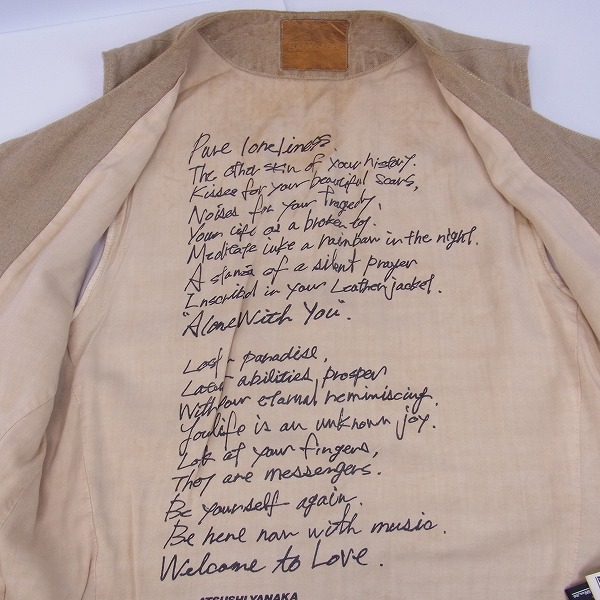 Pure loneliness.
The other skin of your history.
Kisses for your beautiful scars,
Noises for your tragedy,
Your life as a broken toy.
Meditate like a rainbow in the night.
A stanza of a silent prayer
Inscribed in your Leatherjacket.
"Alone With You".
Lost paradise,
Late abilities prosper
With your eternal reminiscing.
Youlife is an unknown joy.
Look at your fingers,
They are messengers.
Be yourself again.
Be here now with music.
Welcome to Love.
ATSUSHI YANAKA